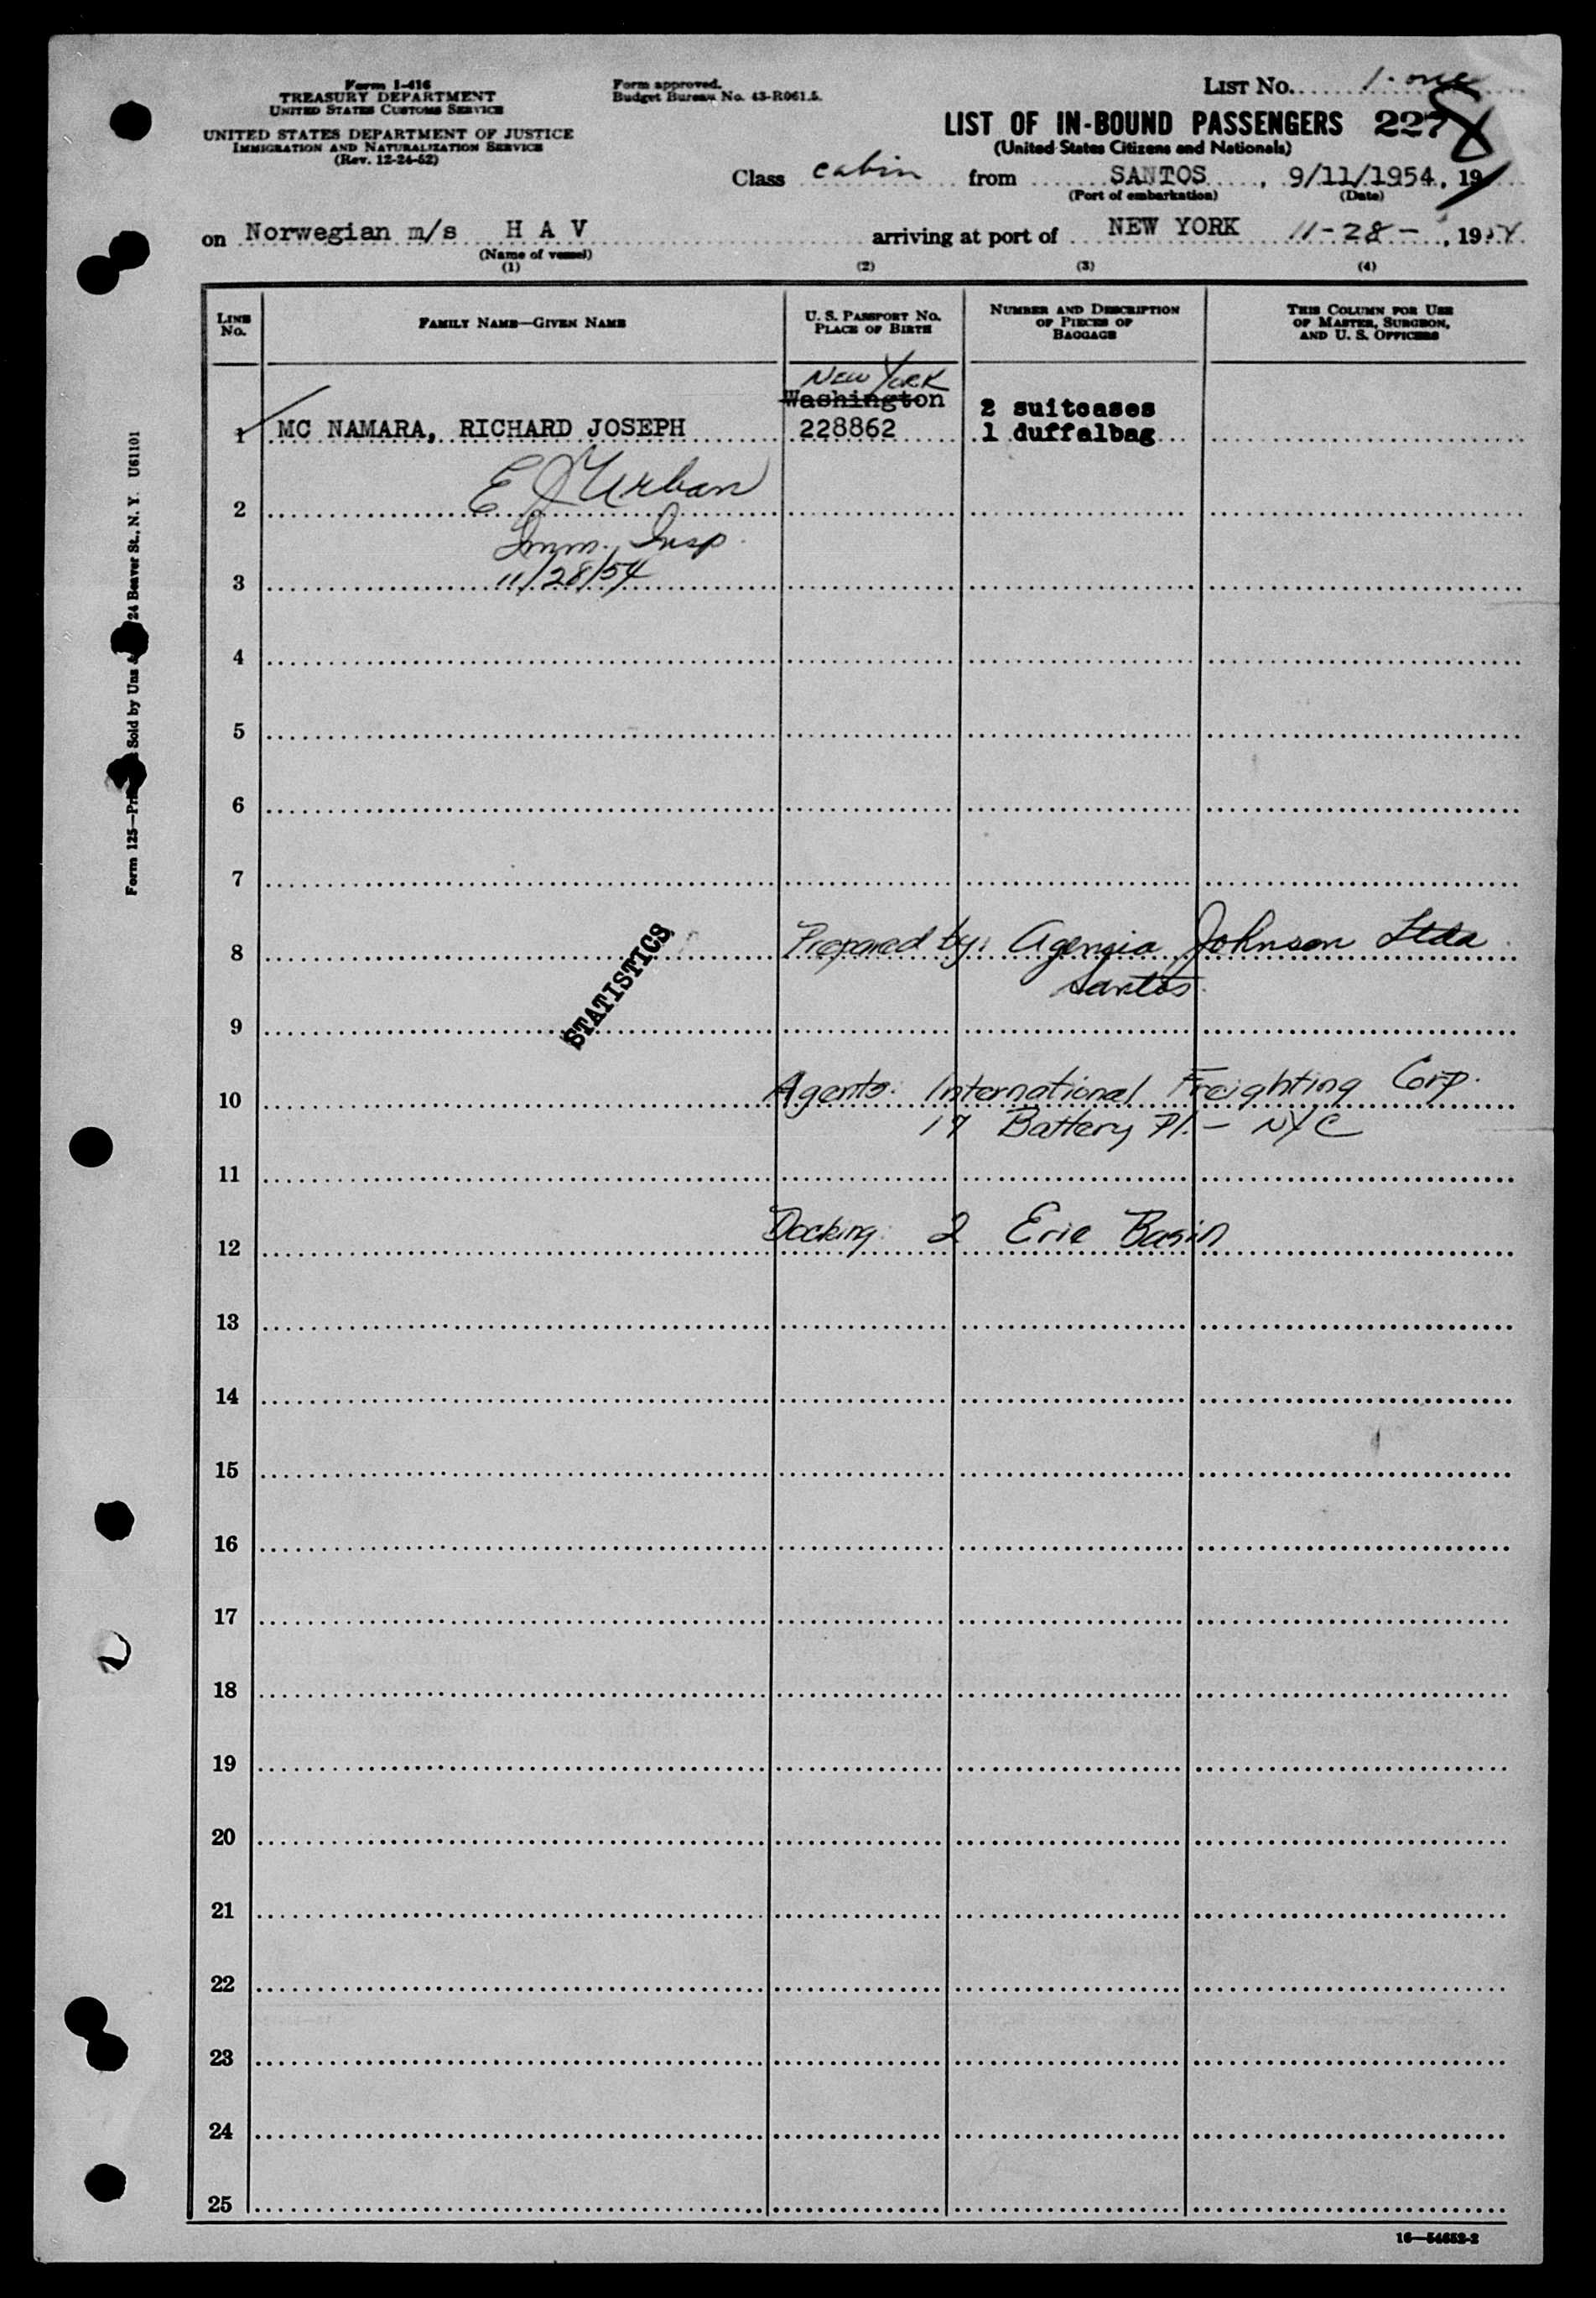 Form I-416
TREASURY DEPARTMENT
UNITED STATES CUSTOMS SERVICE
UNITED STATES DEPARTMENT OF JUSTICE
IMMIGRATION AND NATURALIZATION SERVICE
(Rev. 12-24-52)
Form approved.
Budget Bureau No. 43-R061.5.
LIST No. 1-one
LIST OF IN-BOUND PASSENGERS 227
(United States Citizens and Nationals)
Class cabin from SANTOS, 9/11/1954, 19
(Port of embarkation) (Date)
on Norwegian m/s H A V arriving at port of NEW YORK 11-28-, 1954
(Name of vessel)
(1) (2) (3) (4)
LINE No. FAMILY NAME—GIVEN NAME U. S. PASSPORT NO. PLACE OF BIRTH NUMBER AND DESCRIPTION OF PIECES OF BAGGAGE THIS COLUMN FOR USE OF MASTER, SURGEON, AND U. S. OFFICERS
NEW YORK
Washington 2 suitcases
1 MC NAMARA, RICHARD JOSEPH 228862 1 duffelbag
E J Urban
2
Imm. Insp.
3 11/28/54
4
5
6
7
8 Prepared by: Agencia Johnson Ltda
Santos
STATISTICS
9
10 Agents: International Freighting Corp.
17 Battery Pl. - NYC
11
12 Docking: 2 Erie Basin
13
14
15
16
17
18
19
20
21
22
23
24
25
16—54652-2
Form 125—Pri Sold by Unz & 24 Beaver St., N. Y. U61101